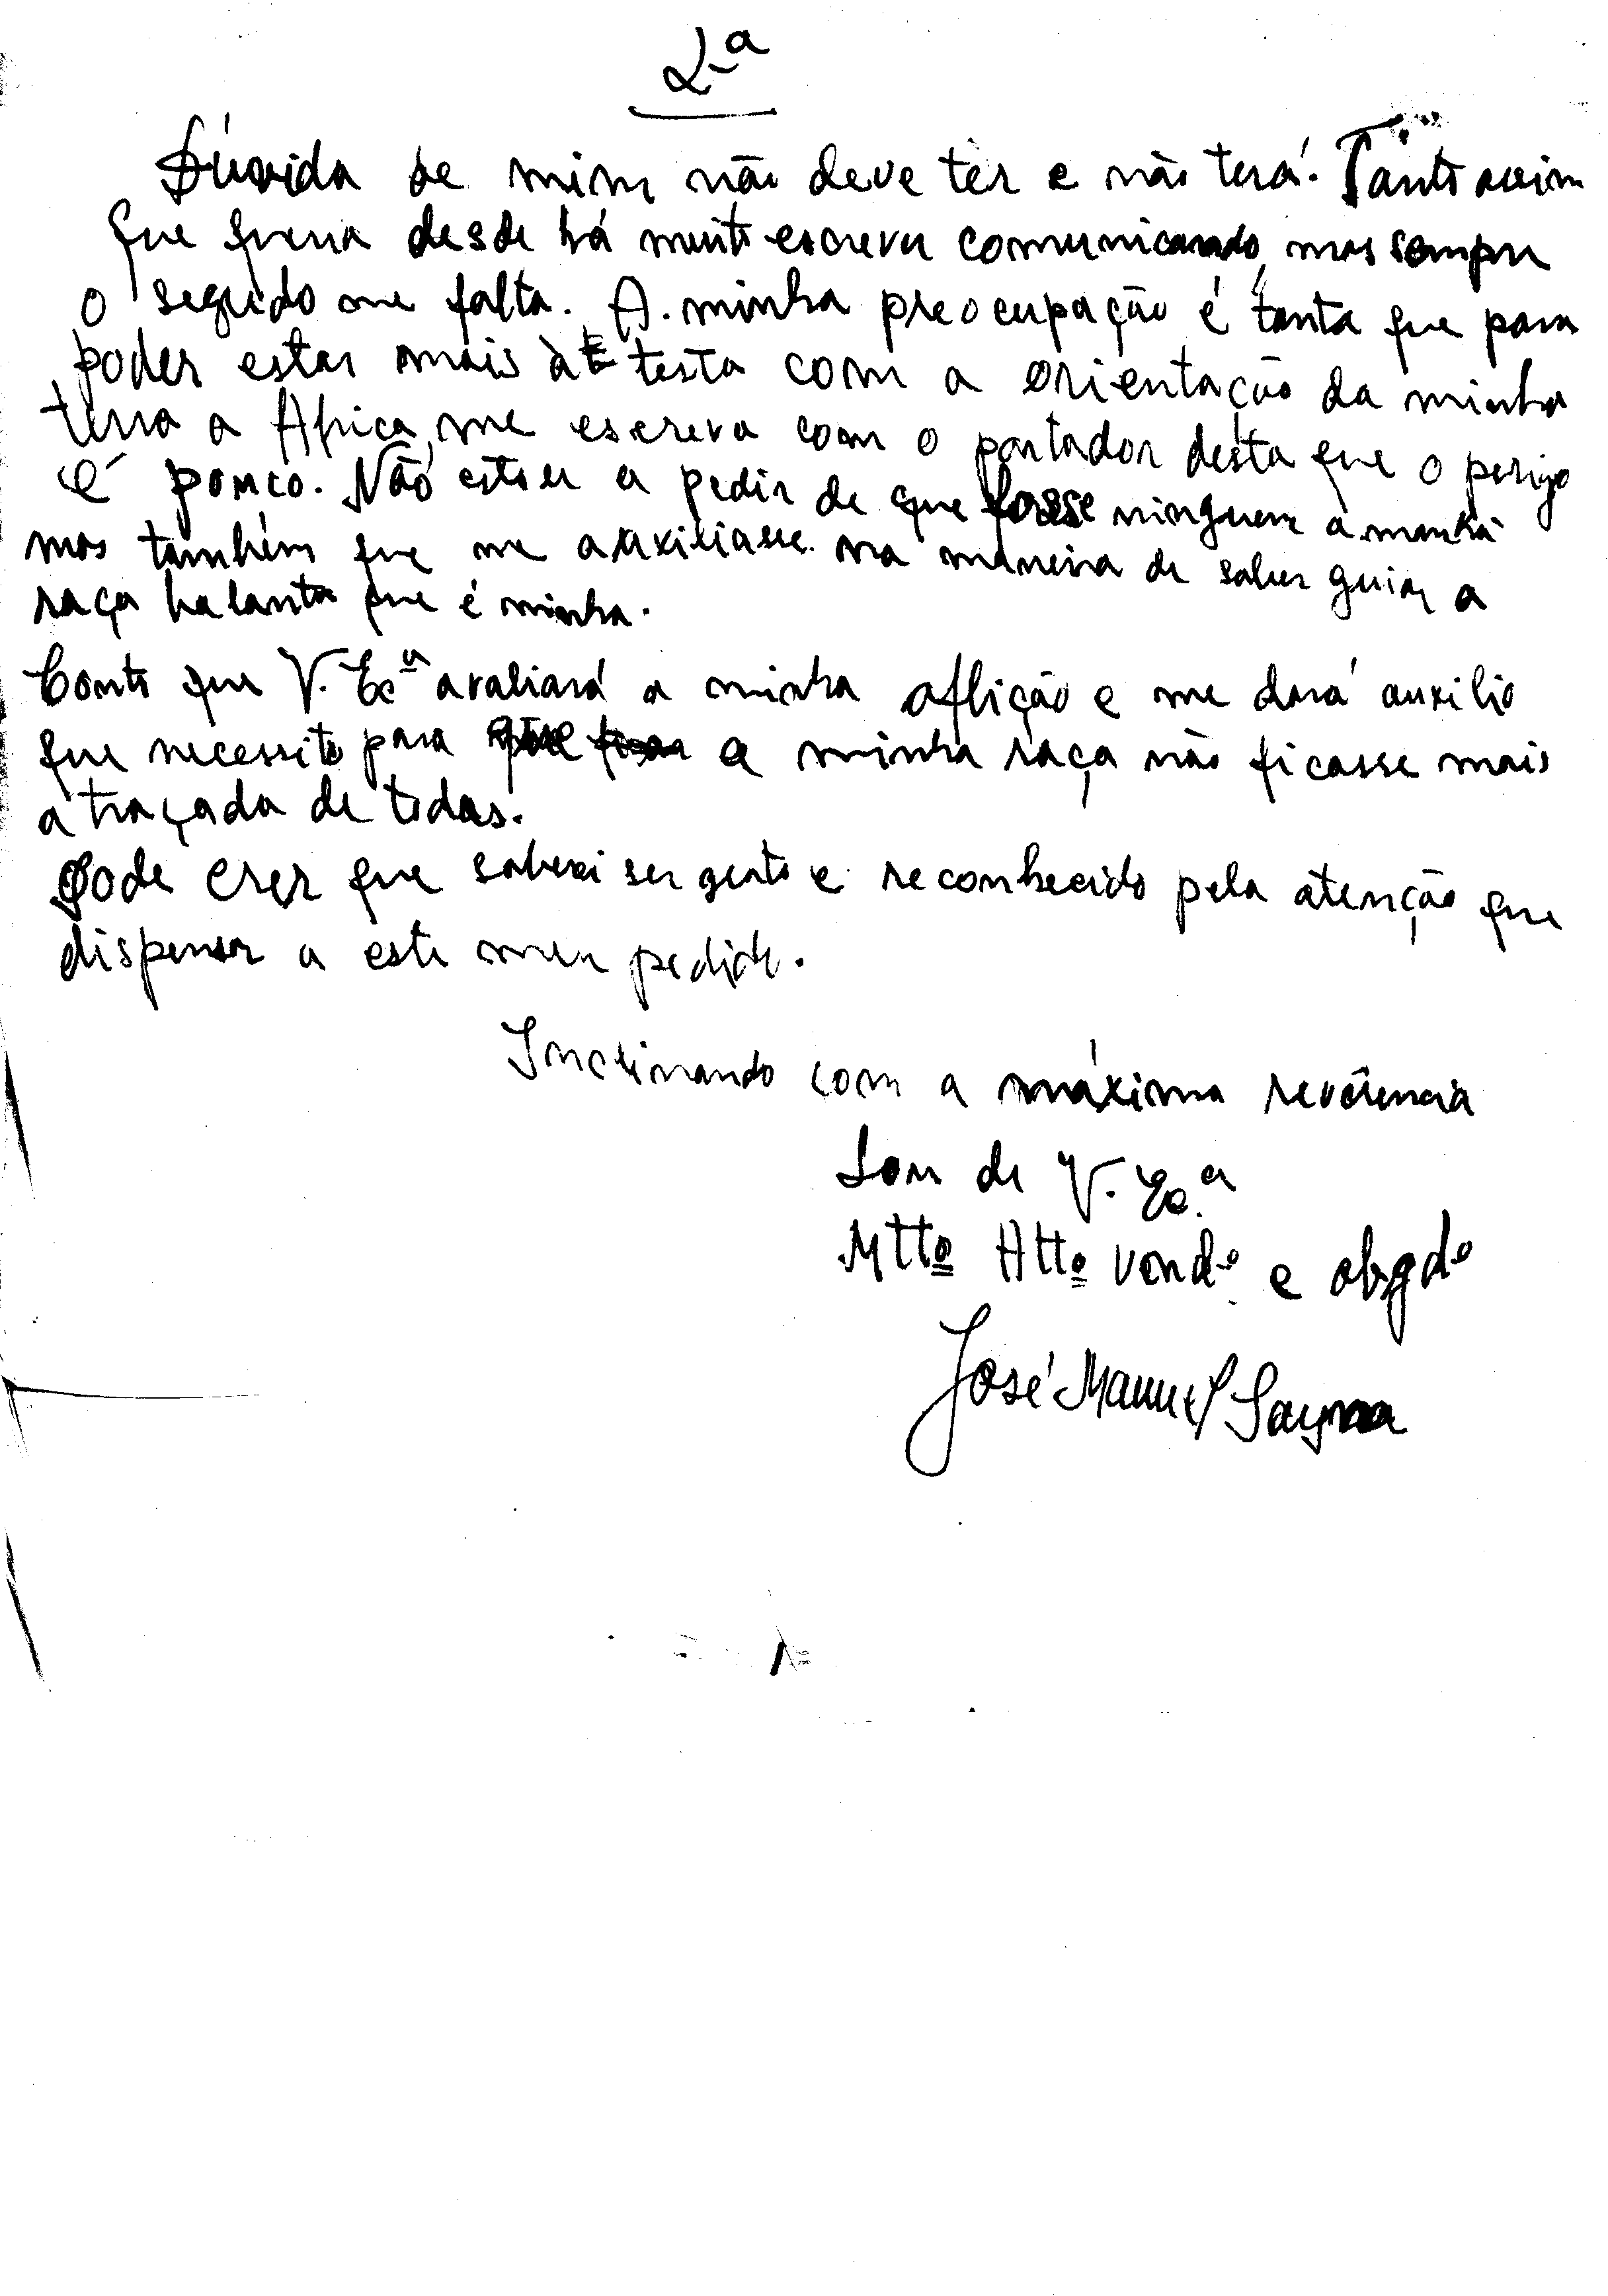 2ª
Dúvida de mim não deve ter e não terá. Tanto assim
que queria desde há muito escrever comunicando, mas sempre
o seguido me falta. A minha preocupação é tanta que para
poder estar mais à testa com a orientação da minha
terra a Africa, me escreva com o portador desta que o perigo
é pouco. Não estou a pedir de que fosse ninguem amanhã
mas também que me auxiliasse na maneira de saber guiar a
raça balanta que é minha.
Conto que V. Exª avaliará a minha aflição e me dará auxilio
que necessito para a minha raça não ficasse mais
atraçada de todas.
Pode crer que saberei ser grato e reconhecido pela atenção que
dispensar a este meu pedido.
Inclinando com a máxima revêrencia
Sou de V. Exª
Mttº Attº vendº e obgdº
José Manuel